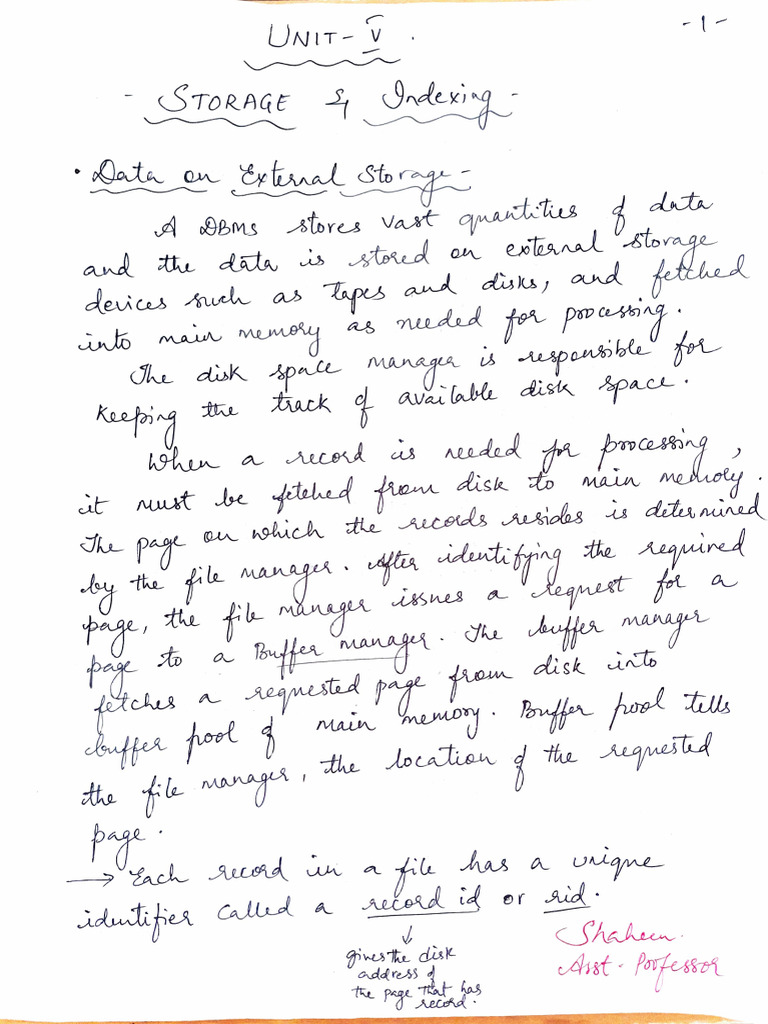 UNIT-V.
-1-
- STORAGE & Indexing -
• Data on External Storage -
A DBMS stores vast quantities of data
and the data is stored on external storage
devices such as tapes and disks, and fetched
into main memory as needed for processing.
The disk space manager is responsible for
keeping the track of available disk space.
When a record is needed for processing,
it must be fetched from disk to main memory.
The page on which the records resides is determined
by the file manager. After identifying the required
page, the file manager issues a request for a
page to a Buffer manager. The buffer manager
fetches a requested page from disk into
buffer pool of main memory. Buffer pool tells
the file manager, the location of the requested
page.
→ Each record in a file has a unique
identifier called a record id or rid.
↓
gives the disk
address of
the page that has
record.
Shaheen.
Asst. Professor